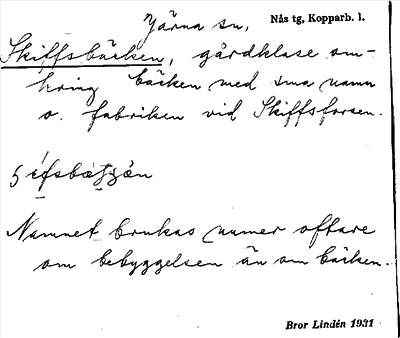 Järna sn,
Nås tg, Kopparb. l.
Skiffsbäcken, gårdklase om-
kring bäcken med sma namn
o. fabriken vid Skiffsforsen.
Namnet brukas numer oftare
om bebyggelsen än om bäcken.
Bror Lindén 1931